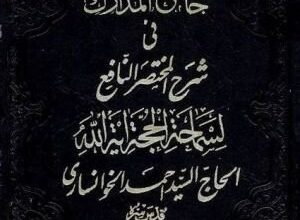 جامع المدارك
فى
شرح المختصر النافع
لسماحة الحجة آية الله
الحاج السيد احمد الخوانسارى
قدس سره